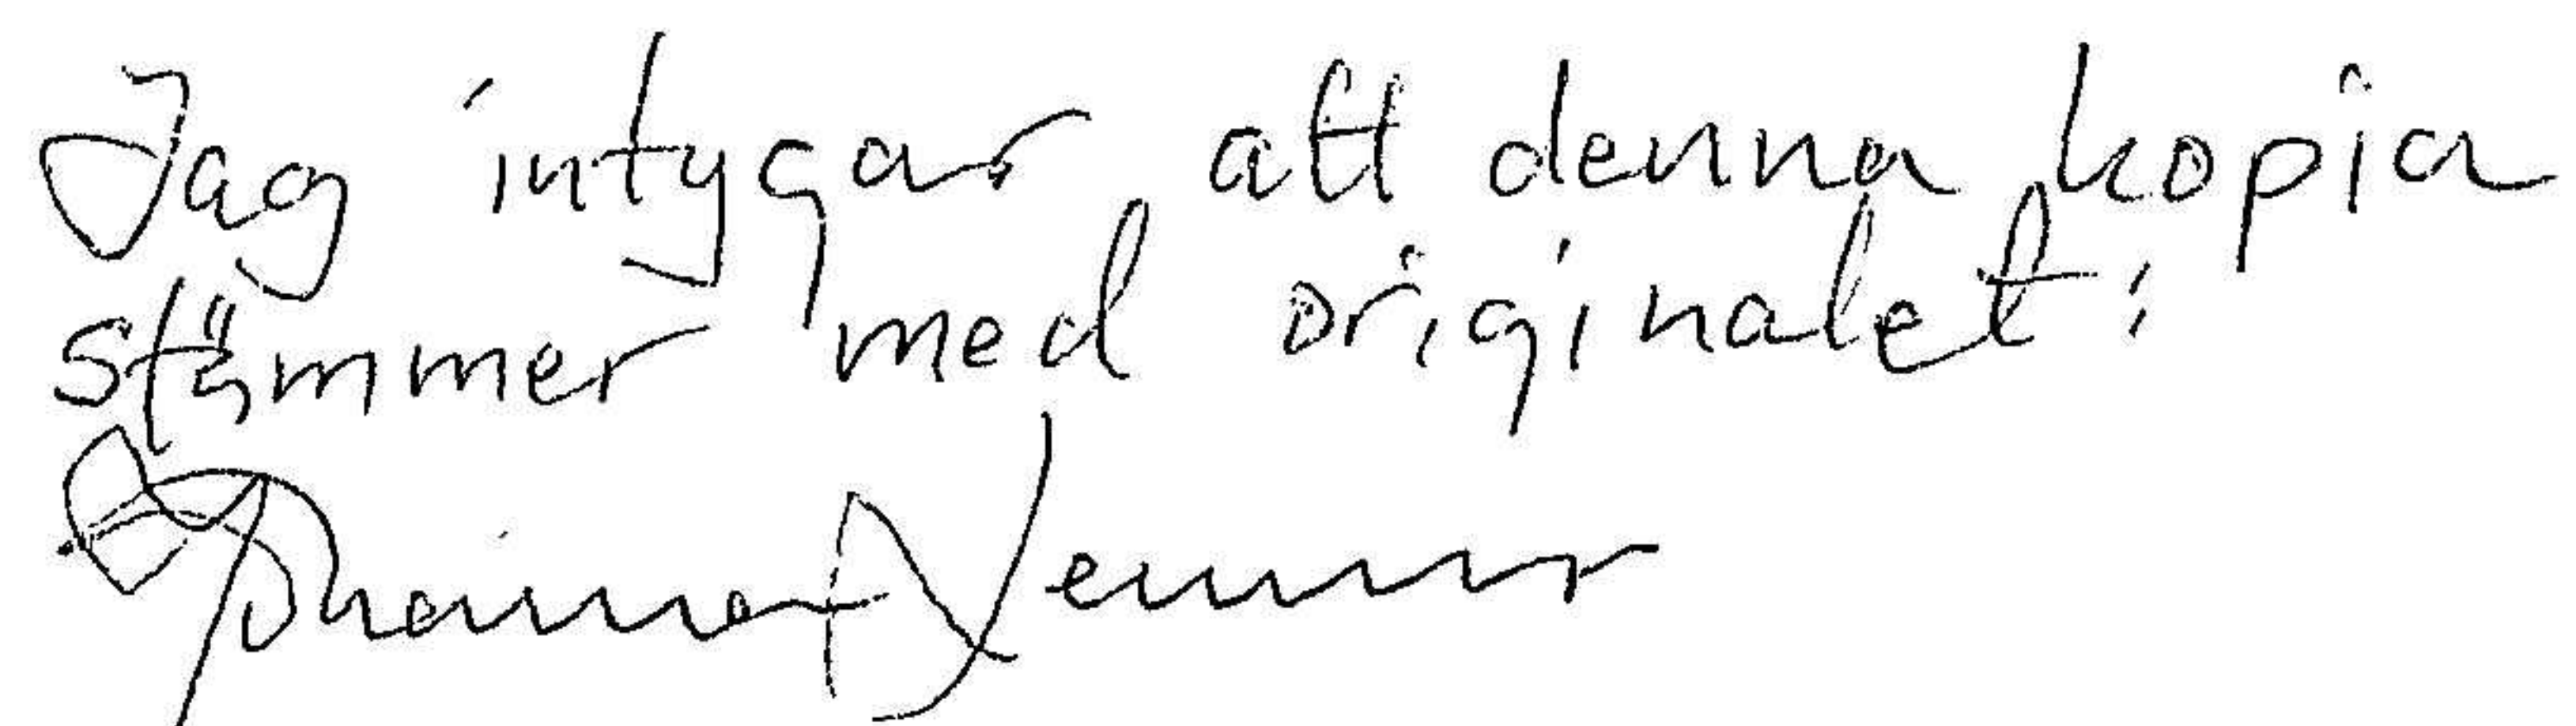 Jag intygar att denna kopia
stämmer med originalet:
Johanna